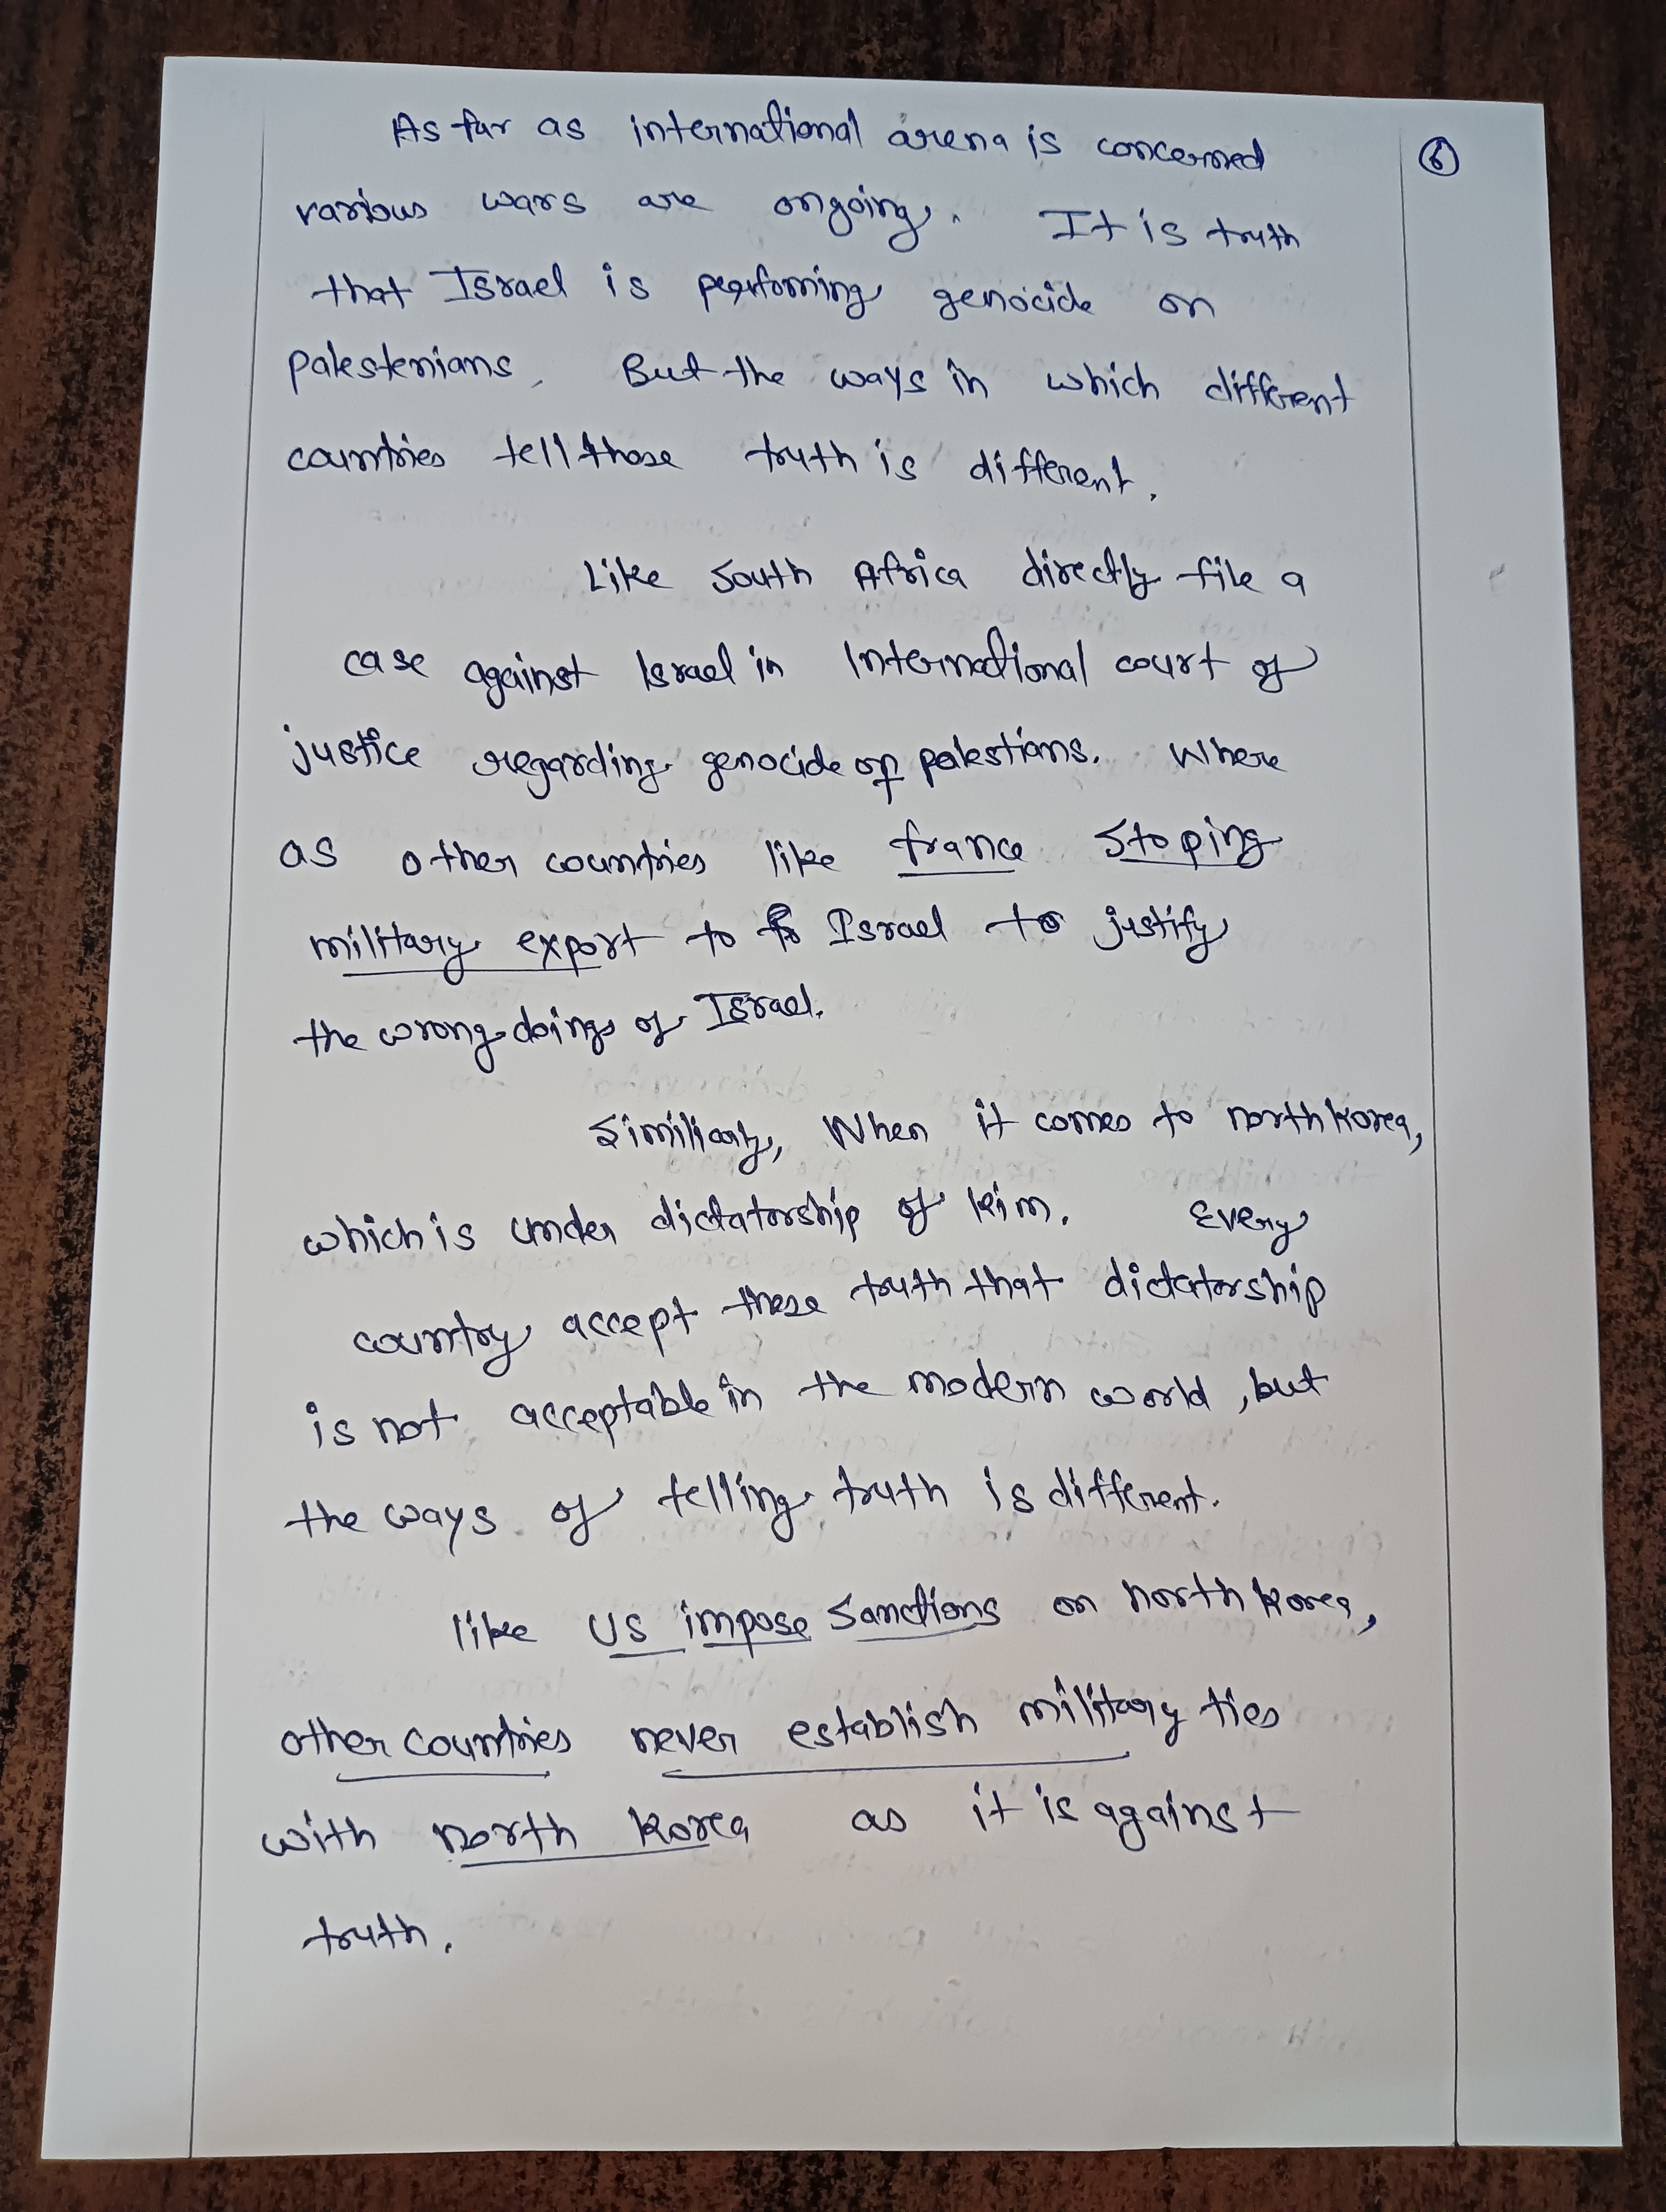 As far as international arena is concerned
6
various wars are ongoing. It is truth
that Israel is performing genocide on
palestenians. But the ways in which different
countries tell those truth is different.
Like South Africa directly file a
case against Israel in International court of
justice regarding genocide of palestians. Where
as other countries like france stoping
military export to Israel to justify
the wrong doings of Israel.
Similiarly, When it comes to north korea,
which is under dictatorship of kim. Every
country accept these truth that dictatorship
is not acceptable in the modern world, but
the ways of telling truth is different.
like US impose sanctions on north korea,
other countries never establish military ties
with north korea as it is against
truth.